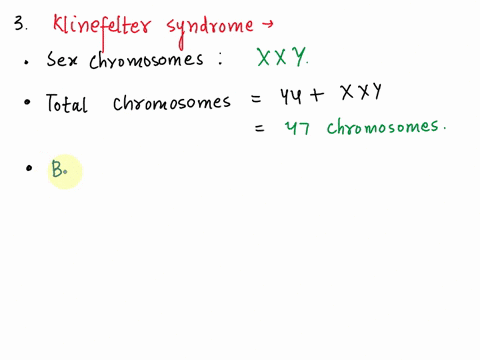 3. Klinefelter syndrome →
• Sex chromosomes : XXY.
• Total chromosomes = 44 + XXY
= 47 chromosomes.
• B.